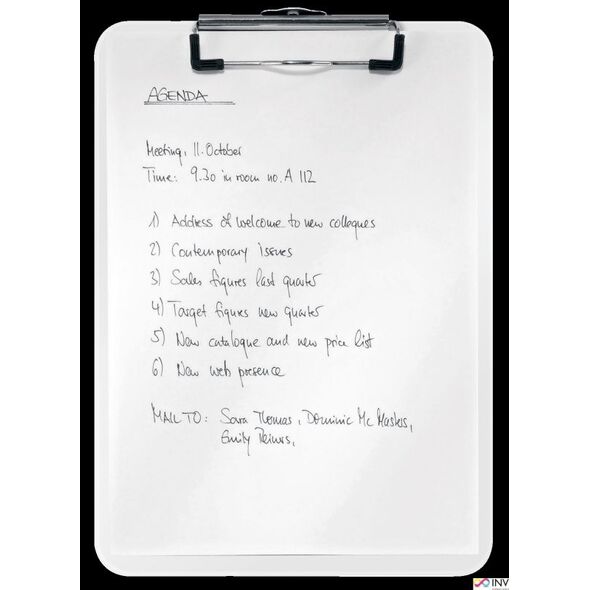 AGENDA
Meeting, 11. October
Time: 9.30 in room no. A 112
1) Address of welcome to new colleques
2) Contemporary issues
3) Sales figures last quarter
4) Target figures new quarter
5) New catalogue and new price list
6) New web presence
MAIL TO: Sara Thomas, Dominic Mc
Emily
INV